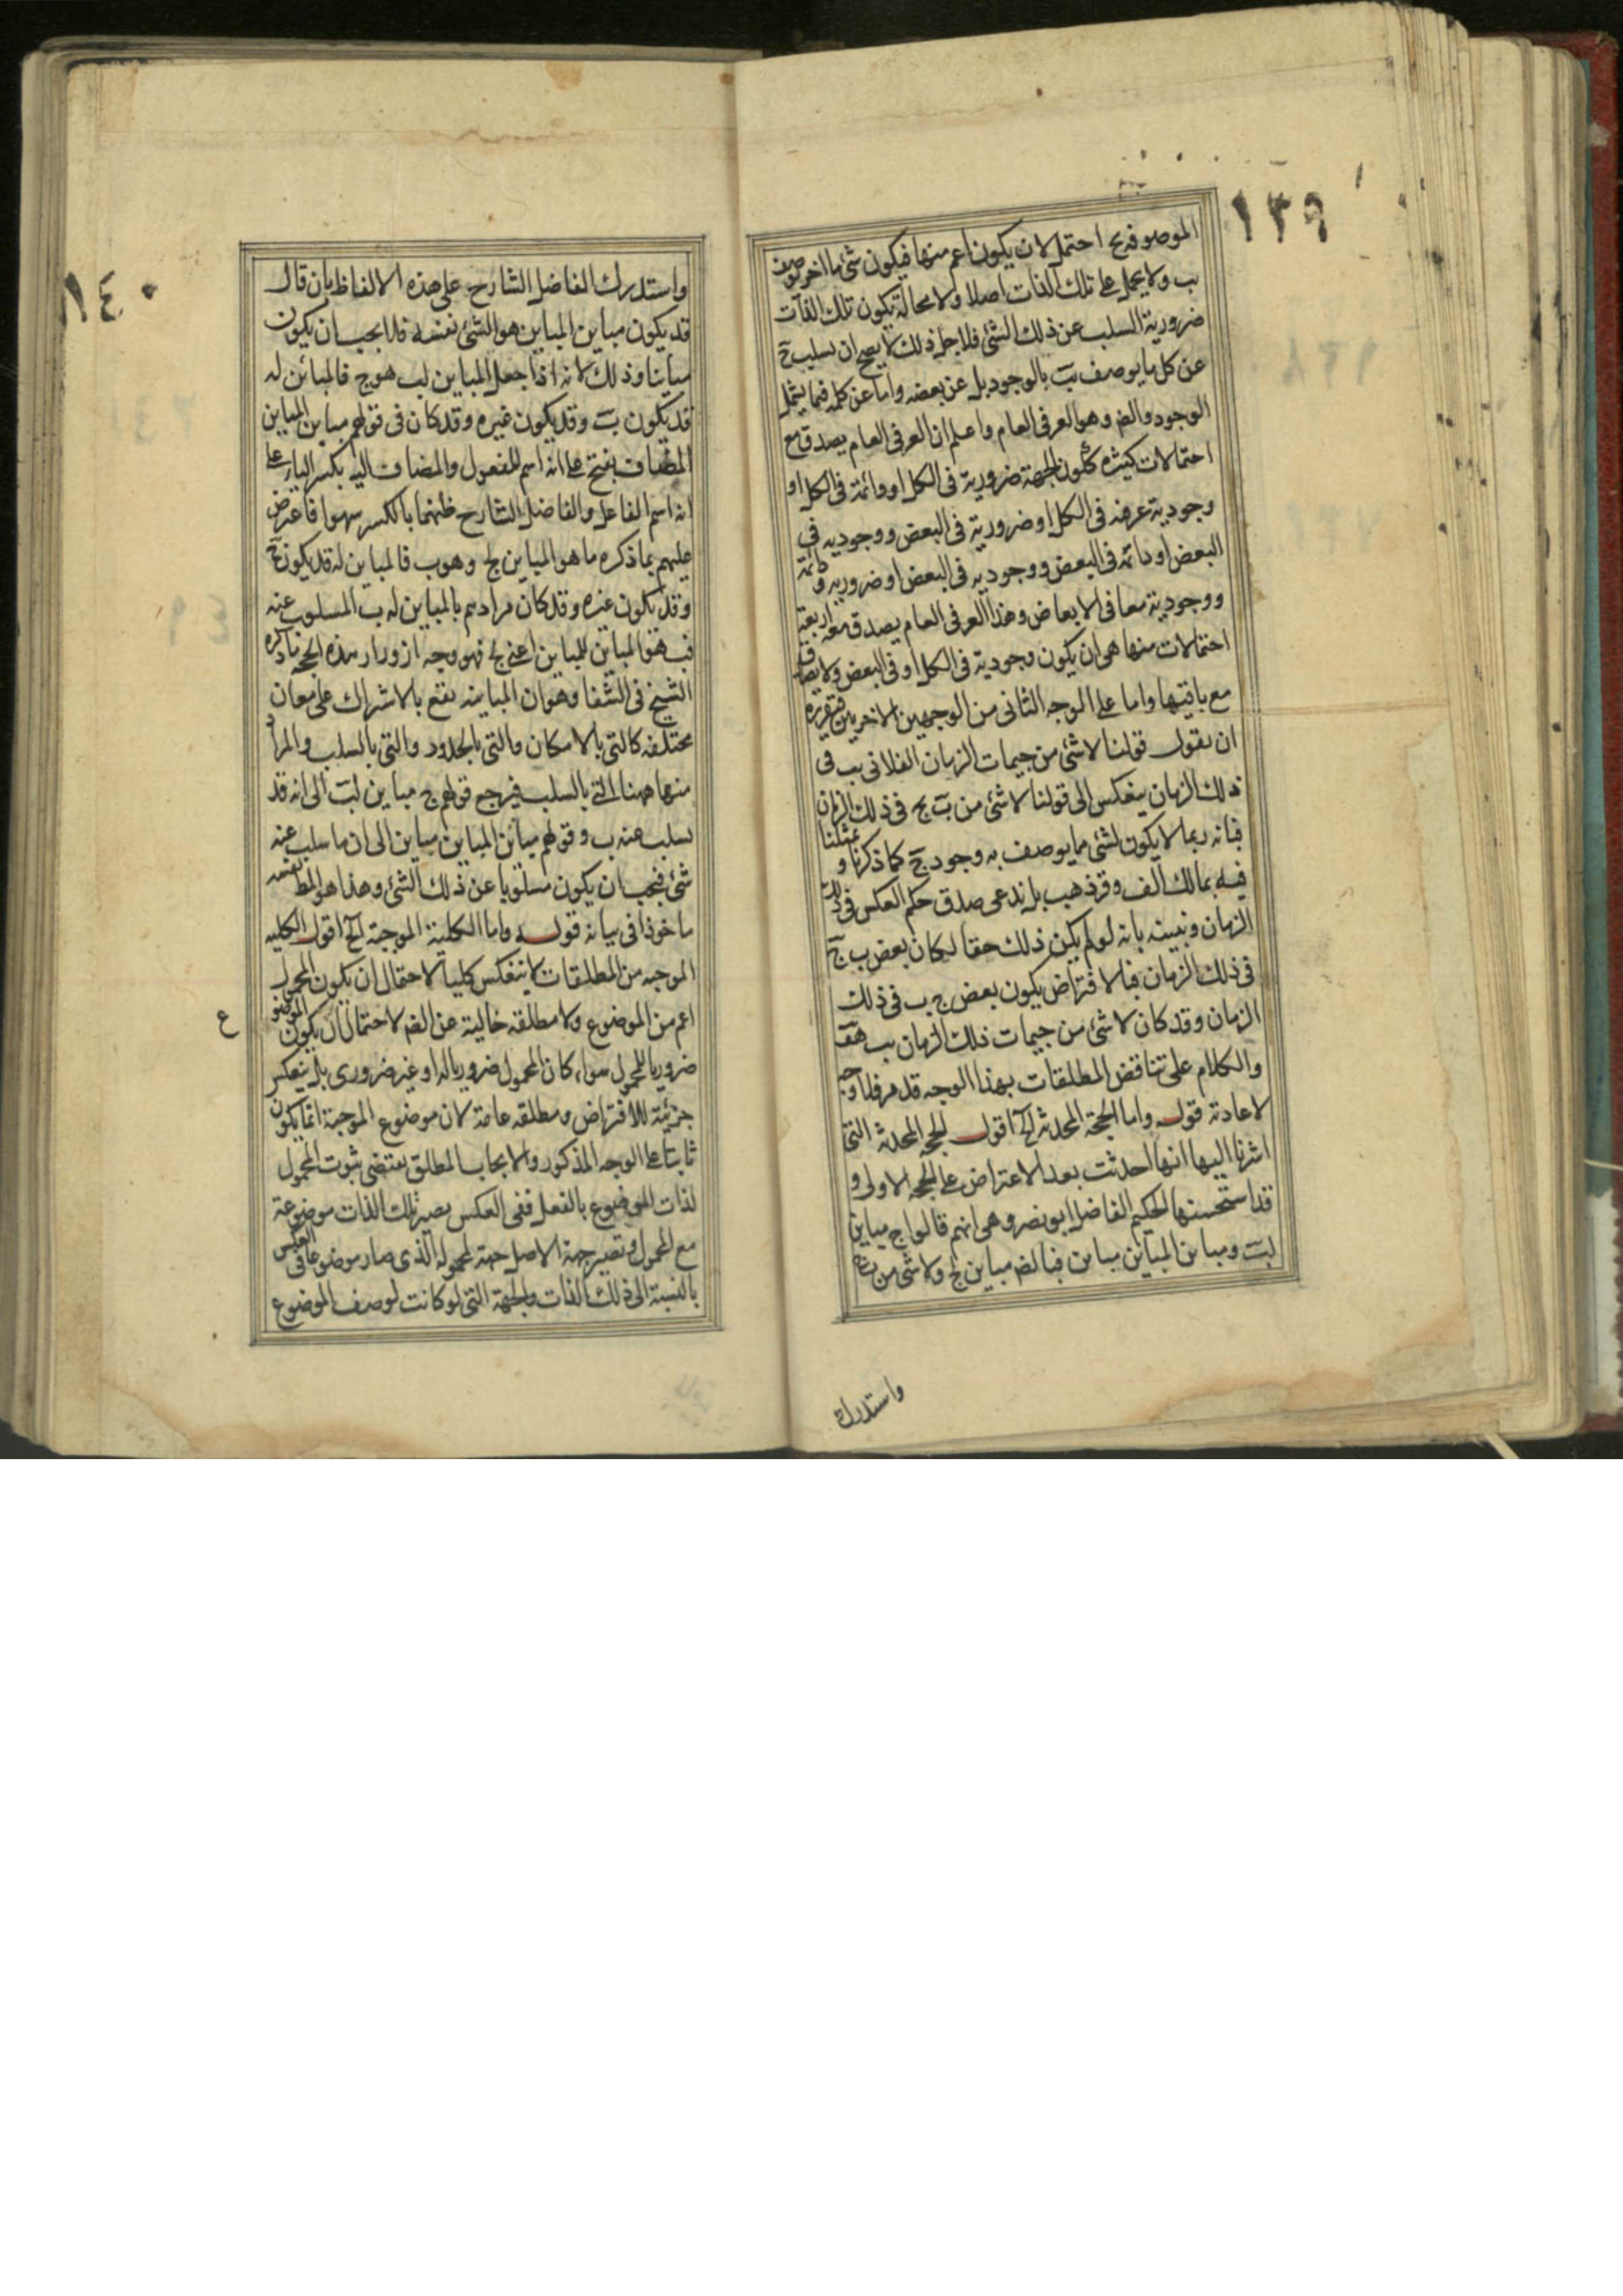 ١٣٩
الموصوفة بج احتمل لان يكون اعم منها فيكون شئ ما اخر يوصف
ب ولا يحمل على تلك الذات اصلا ولا محالة يكون تلك الذات
ضرورية السلب عن ذلك الشئ فلاجل ذلك لا يصح ان يسلب ج
عن كل ما يوصف ب بالوجود بل عن بعضه واما عن كله فما يشمل
الوجود والضم وهو العرفى العام واعلم ان العرفى العام يصدق مع
احتمالات كثيرة ككون الجهة ضرورية فى الكل او دائمة فى الكل او
وجودية عرفية فى الكل او ضرورية فى البعض ووجودية فى
البعض او دائمة فى البعض ووجودية فى البعض او ضرورية ودائمة
ووجودية معا فى الابعاض وهذا العرفى العام يصدق معه اربعة
احتمالات منها هى ان يكون وجودية فى الكل او فى البعض ولا يصدق
مع باقيتها واما على الوجه الثانى من الوجهين الاخريين فتقريره
ان يقول قولنا لا شئ من جيمات الزمان الفلانى ب فى
ذلك الزمان ينعكس الى قولنا لا شئ من ب ج فى ذلك الزمان
فانه ربما لا يكون لشئ مما يوصف به وجود ج كما ذكرنا ومثلنا
فيه بمالك الف وقر ذهب بل ندعى صدق حكم العكس فى ذلك
الزمان ونبينه بانه لو لم يكن ذلك حقا لكان بعض ب ج
فى ذلك الزمان فبالافتراض يكون بعض ج ب فى ذلك
الزمان وقد كان لا شئ من جيمات ذلك الزمان ب هف
والكلام على تناقض المطلقات بهذا الوجه قد مر فلا وجه
لاعادته قوله واما الحجة المحدثة الخ اقول الحجة المحدثة التى
اشرنا اليها انها احدثت بعد الاعتراض على الحجة الاولى و
قد استحسنها الحكيم الفاضل ابو نصر وهى انهم قالوا ج مباين
لب ومباين المباين مباين فبالضم مباين لج ولا شئ من
واستدرك
١٤٠
واستدرك الفاضل الشارح على هذه الالفاظ بان قال
قد يكون مباين المباين هو الشئ نفسه فلا يجب ان يكون
مباينا وذلك لانه اذا جعل المباين لب هو ج فالمباين له
قد يكون ب وقد يكون غيره وقد كان فى قولهم مباين المباين
المضاف بفتح على انه اسم للمفعول والمضاف اليه بكسر الياء على
انه اسم الفاعل والفاضل الشارح ظنهما بالكسر سهوا فاعترض
عليهم بما ذكره ما هو المباين لج وهو ب فالمباين له قد يكون ج
وقد يكون غيره وقد كان مرادهم بالمباين له ب المسلوب عنه
فب هو المباين للمباين اعنى لج فهو وجه ازورار هذه الحجة ما ذكره
الشيخ فى الشفا وهو ان المباينة تقع بالاشتراك على معان
مختلفه كالتى بالامكان والتى بالحدود والتى بالسلب والمراد
منها ههنا التى بالسلب فيرجع قولهم ج مباين لب الى انه قد
سلب عنه ب وقولهم مباين المباين مباين الى ان ما سلب عنه
شئ فيجب ان يكون مسلوبا عن ذلك الشئ وهذا هو المط بعينه
ماخوذا فى بيانه قوله واما الكلية الموجبة الخ اقول الكلية
الموجبة من المطلقات لا ينعكس كليا لاحتمال ان يكون المحمول
اعم من الموضوع ولا مطلقه خالية عن الضم لاحتمال ان يكون الموضوع
ع
ضروريا للمحمول سواء كان المحمول ضروريا له او غير ضرورى بل ينعكس
جزئية للافتراض ومطلقه عامة لان موضوع الموجبة انما يكون
ثابتا على الوجه المذكور والايجاب المطلق يقتضى ثبوت المحمول
لذات الموضوع بالفعل ففى العكس يصير تلك الذات موضوعة
مع المحمول وتصير جهة الاصل جهة لمحموله الذى صار موضوعا فى العكس
بالنسبة الى ذلك الذات والجهة التى لو كانت لوصف الموضوع